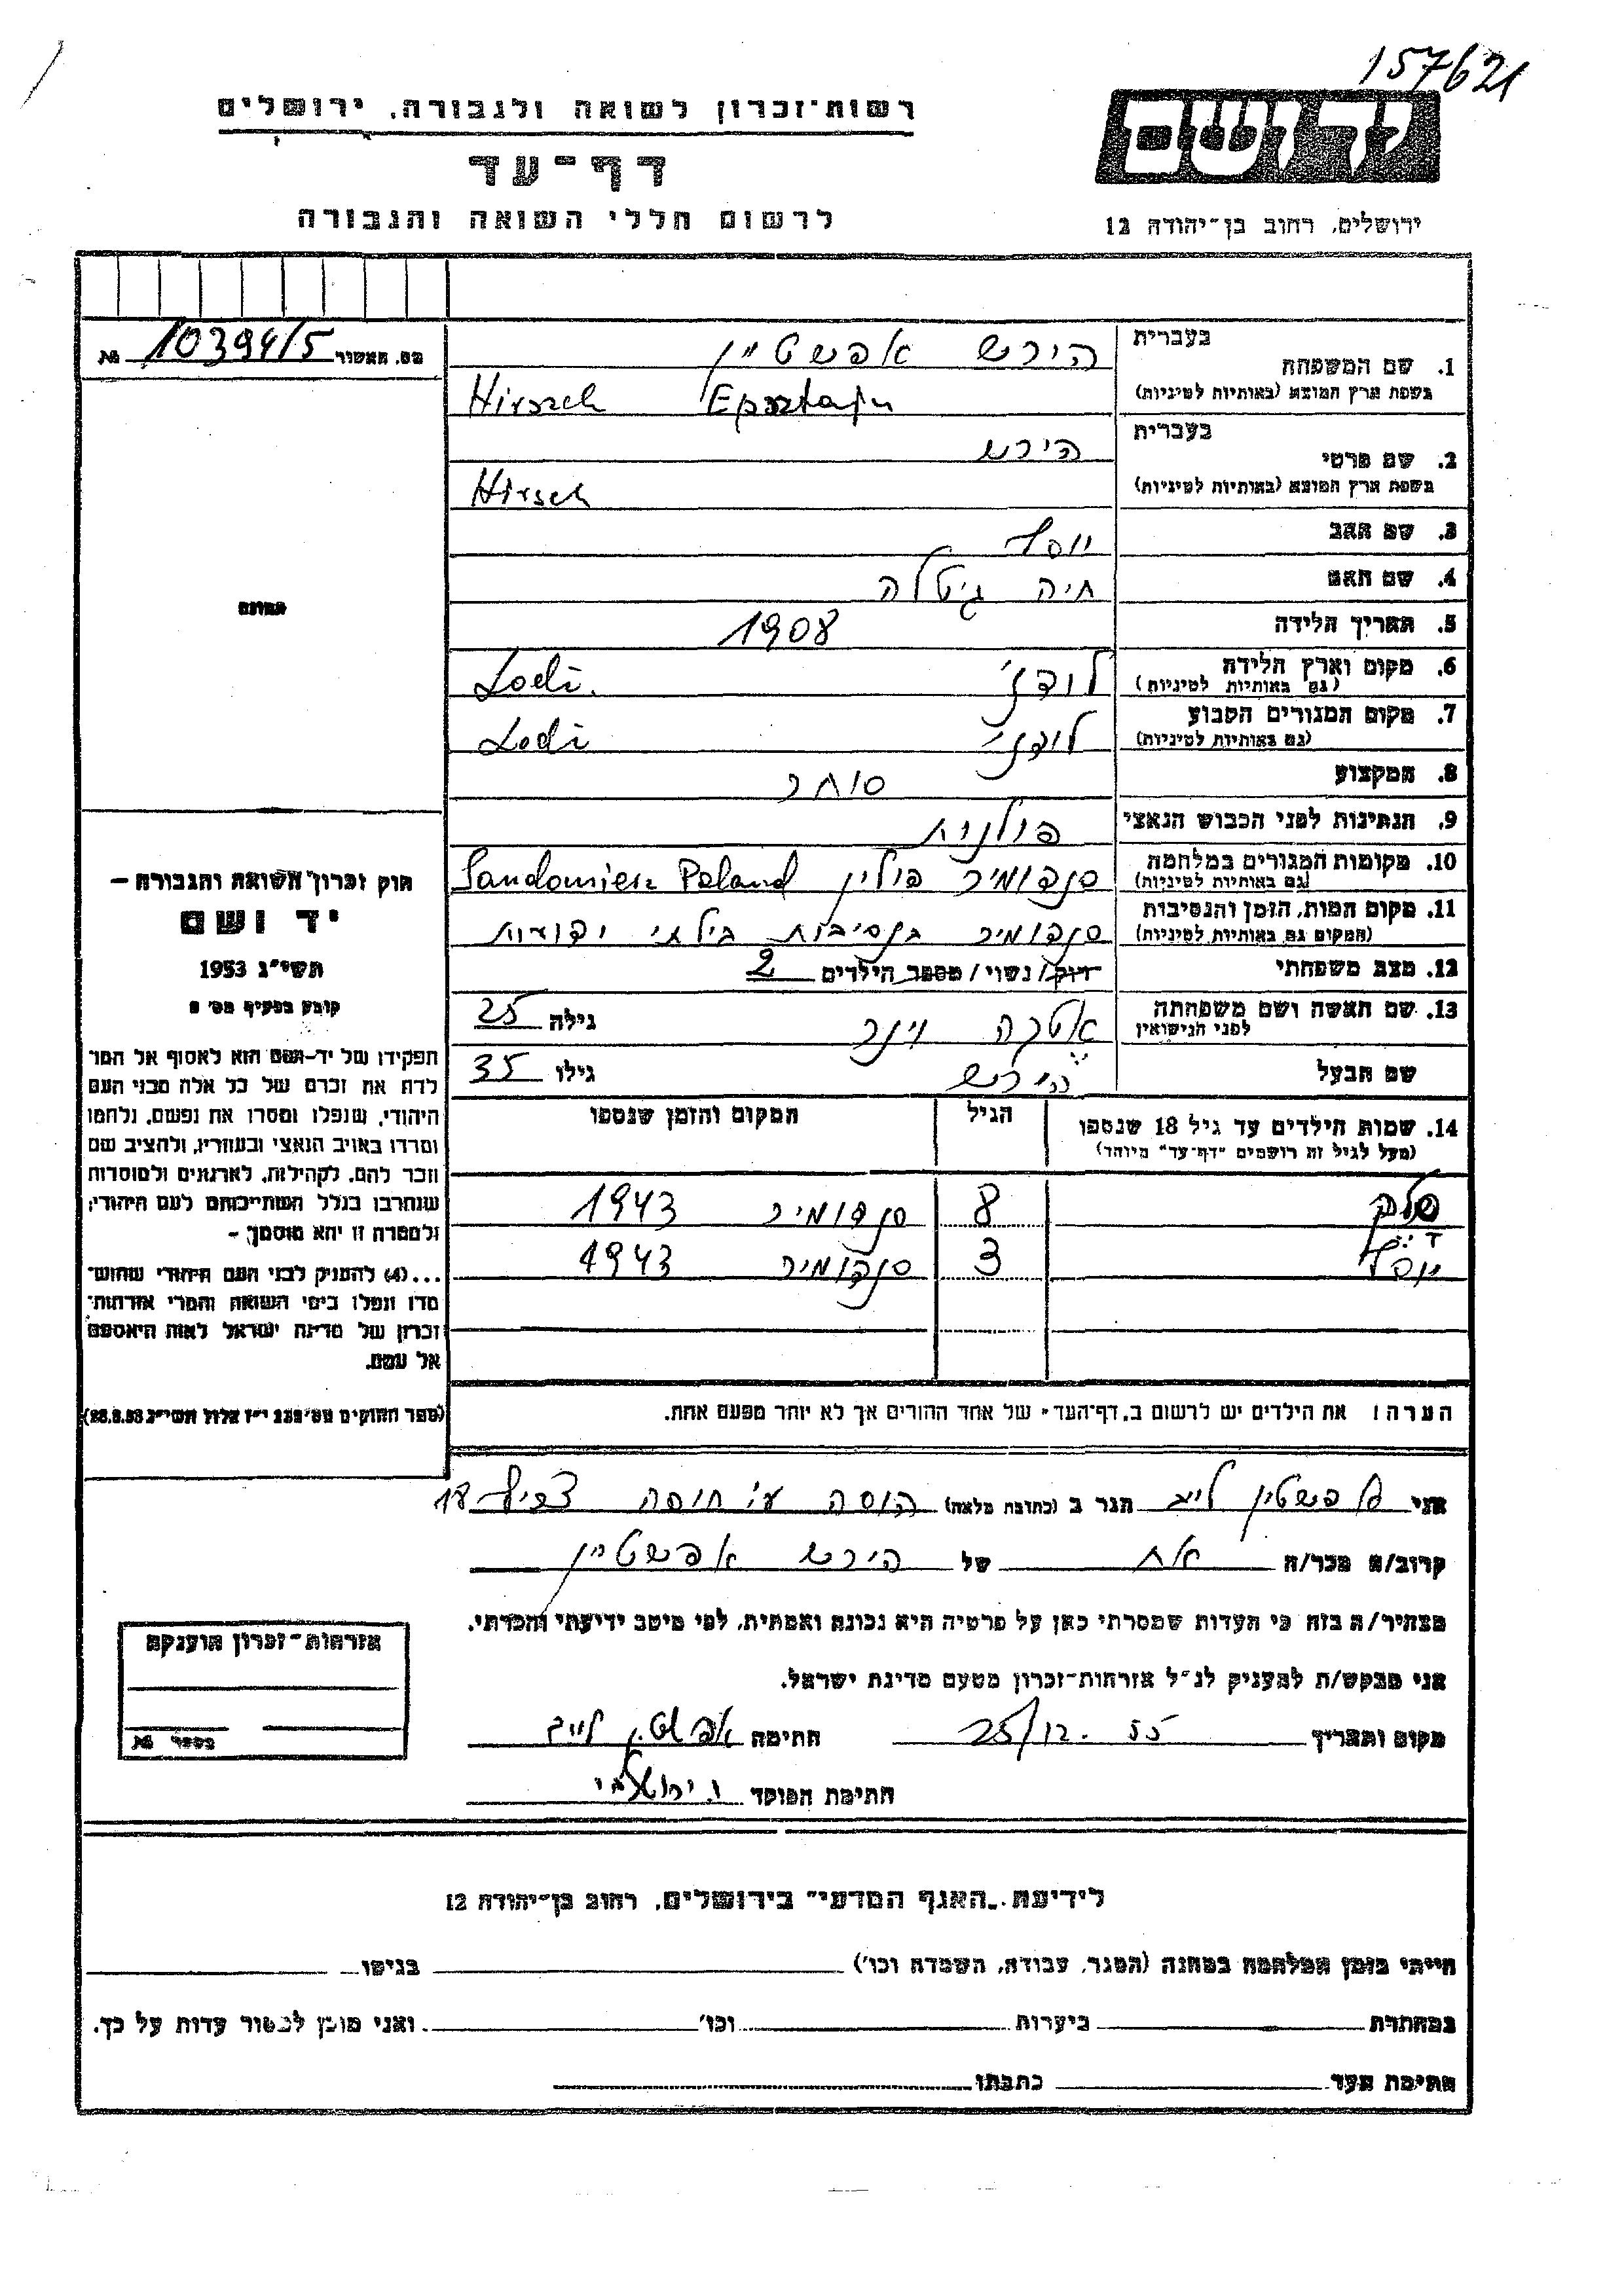 157621
רשות-זכרון לשואה ולגבורה, ירושלים
דף-עד
לרשום חללי השואה והגבורה
יד ושם
ירושלים, רחוב בן-יהודה 12
מס. האשור № 10394/5
בעברית
1. שם המשפחה הירש אפשטיין
בשפת ארץ המוצא (באותיות לטיניות) Hirszch Epsztajn
בעברית
2. שם פרטי הירש
בשפת ארץ המוצא (באותיות לטיניות) Hirsch
3. שם האב יוסף
4. שם האם חיה גיטלה
5. תאריך הלידה 1908
6. מקום וארץ הלידה לודז' Lodz.
(גם באותיות לטיניות)
7. מקום המגורים הקבוע לודז' Lodz
(גם באותיות לטיניות)
8. המקצוע סוחר
9. הנתינות לפני הכבוש הנאצי פולנית
10. מקומות המגורים במלחמה סנדומיר פולין Sandomierz Poland
(גם באותיות לטיניות)
11. מקום המות, הזמן והנסיבות סנדומיר בנסיבות בילתי ידועות
(המקום גם באותיות לטיניות)
12. מצב משפחתי רווק/ נשוי/ מספר הילדים 2
13. שם האשה ושם משפחתה אטרה וינר גילה 25
לפני הנישואין
שם הבעל הירש גילו 35
14. שמות הילדים עד גיל 18 שנספו הגיל המקום והזמן שנספו
(מעל לגיל זה רושמים "דף-עד" מיוחד)
8 סנדומיר 1943
יוסף 3 סנדומיר 1943
הערה: את הילדים יש לרשום ב"דף-העד" של אחד ההורים אך לא יותר מפעם אחת.
התמונה
חוק זכרון השואה והגבורה –
יד ושם
תשי"ג 1953
קובע בסעיף מס' 2
תפקידו של יד-ושם הוא לאסוף אל המו
לדת את זכרם של כל אלה מבני העם
היהודי, שנפלו ומסרו את נפשם, נלחמו
ומרדו באויב הנאצי ובעוזריו, ולהציב שם
וזכר להם, לקהילות, לארגונים ולמוסדות
שנחרבו בגלל השתייכותם לעם היהודי;
ולמטרה זו יהא מוסמך, –
...(4) להעניק לבני העם היהודי שהוש-
מדו ונפלו בימי השואה והמרי אזרחות-
זכרון של מדינת ישראל לאות היאספם
אל עמם.
(ספר החוקים מס' 132 י"ז אלול תשי"ג 28.8.53)
אני אפשטין לייב הגר ב (כתובת מלאה) 18
קרוב/ה מכר/ה אח של הירש אפשטיין
מצהיר/ה בזה כי העדות שמסרתי כאן על פרטיה היא נכונה ואמתית, לפי מיטב ידיעתי והכרתי.
אני מבקש/ת להעניק לנ"ל אזרחות-זכרון מטעם מדינת ישראל.
מקום ותאריך 25/12. 55 חתימה אפשטין לייב
חתימת הפוקד
אזרחות-זכרון הוענקה
בספר №
לידיעת "האגף המדעי" בירושלים, רחוב בן-יהודה 12
הייתי בזמן המלחמה במחנה (הסגר, עבודה, השמדה וכו') בגיטו
במחתרת ביערות וכו' ואני מוכן למסור עדות על כך.
חתימת העד כתבתו